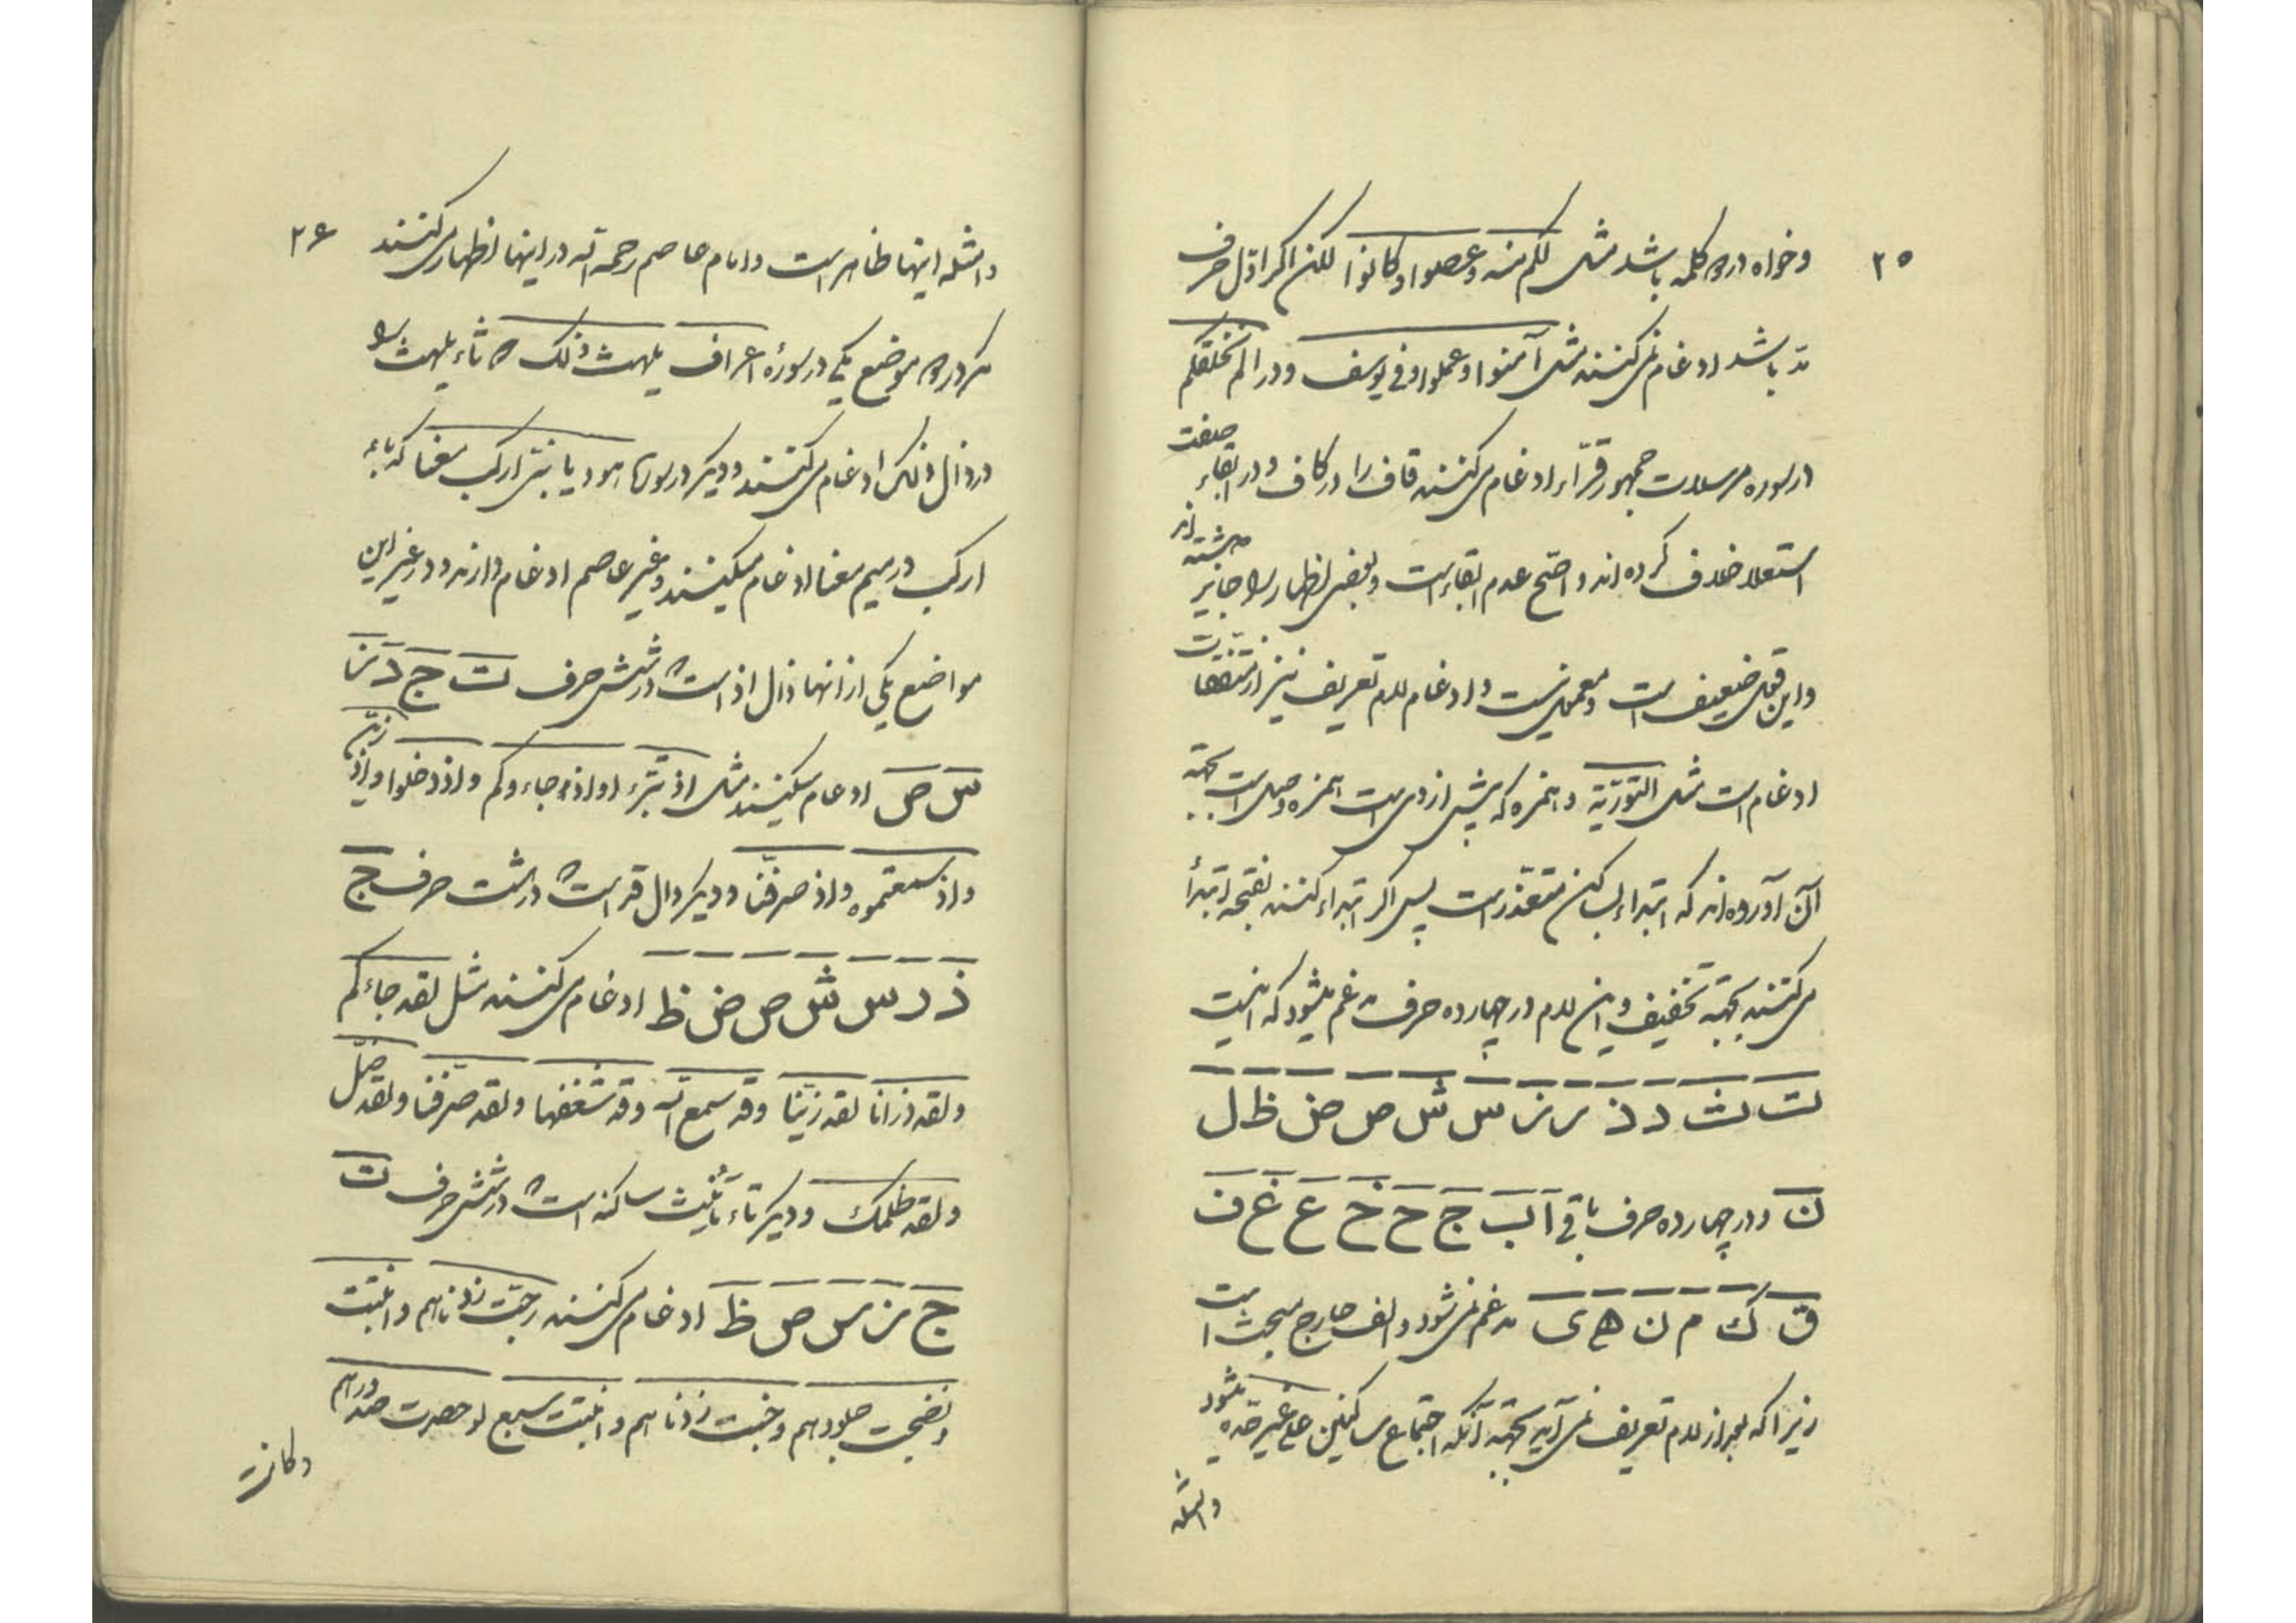 ۲۵
وخواه در دو کلمه باشد مثل لکم منه وعصوا وکانوا لکن اکر اوّل حرف
مدّ باشد ادغام نمی کنند مثل آمنوا وعملوا وفی یوسف ودر الم نخلقکم
در سوره مرسلات جمهور قرّاء ادغام می کنند قاف را در کاف ودر ابقاء صفت
استعلا خلاف کرده اند واصح عدم ابقاء است وبعضی اظهار را جایز داشته اند
واین قول ضعیف است ومعمول نیست وادغام لام تعریف نیز از
ادغام است مثل التّوریة وهمزه که پیش از وی است همزه وصل است بجهة
آن آورده اند که ابتداء بساکن متعذّر است پس اکر ابتداء کنند بفتحه ابتدا
می کنند بجهة تخفیف واین لام در چهارده حرف مدغم میشود که اینست
ت ث د ذ ر ز س ش ص ض ظ ل
ن ودر چهارده حرف باقی ا ب ج ح خ ع غ ف
ق ک م ن ه ی مدغم نمی شود والف خارج مبحث است
زیرا که بعد از لام تعریف نمی آید بجهة آنکه اجتماع ساکنین علی غیر حدّه میشود
وامثله
۲۶
وامثله اینها ظاهر است وامام عاصم رحمه الله در اینها اظهار می کنند
مکر در دو موضع یکی در سورهٔ اعراف یلهث ذلک که ثاء یلهث را
در ذال ذلک ادغام می کنند ودیکر در سورهٔ هود یا بنی ارکب معنا که باء
ارکب در میم معنا ادغام میکنند وغیر عاصم ادغام دارند ودر غیر این
مواضع یکی از انها ذال اذ است که در شش حرف ت ج د ز
س ص ادغام میکنند مثل اذ تبرّء او اذ جاءوکم واذ دخلوا واذ زیّن
واذ سمعتموه واذ صرفنا ودیکر دال قد است که در هشت حرف ج
ذ ز س ش ص ض ظ ادغام می کنند مثل لقد جاءکم
ولقد ذرانا لقد زیّنا وقد سمع الله وقد شغفها ولقد صرّفنا ولقد ضلّ
ولقد ظلمک ودیکر تاء تأنیث ساکنه است که در شش حرف ث
ج ز س ص ظ ادغام می کنند رحبت زدناهم وانبتت
ونضجت جلودهم وخبت زدناهم وانبتت سبع او حصرت صدورهم
وکانت